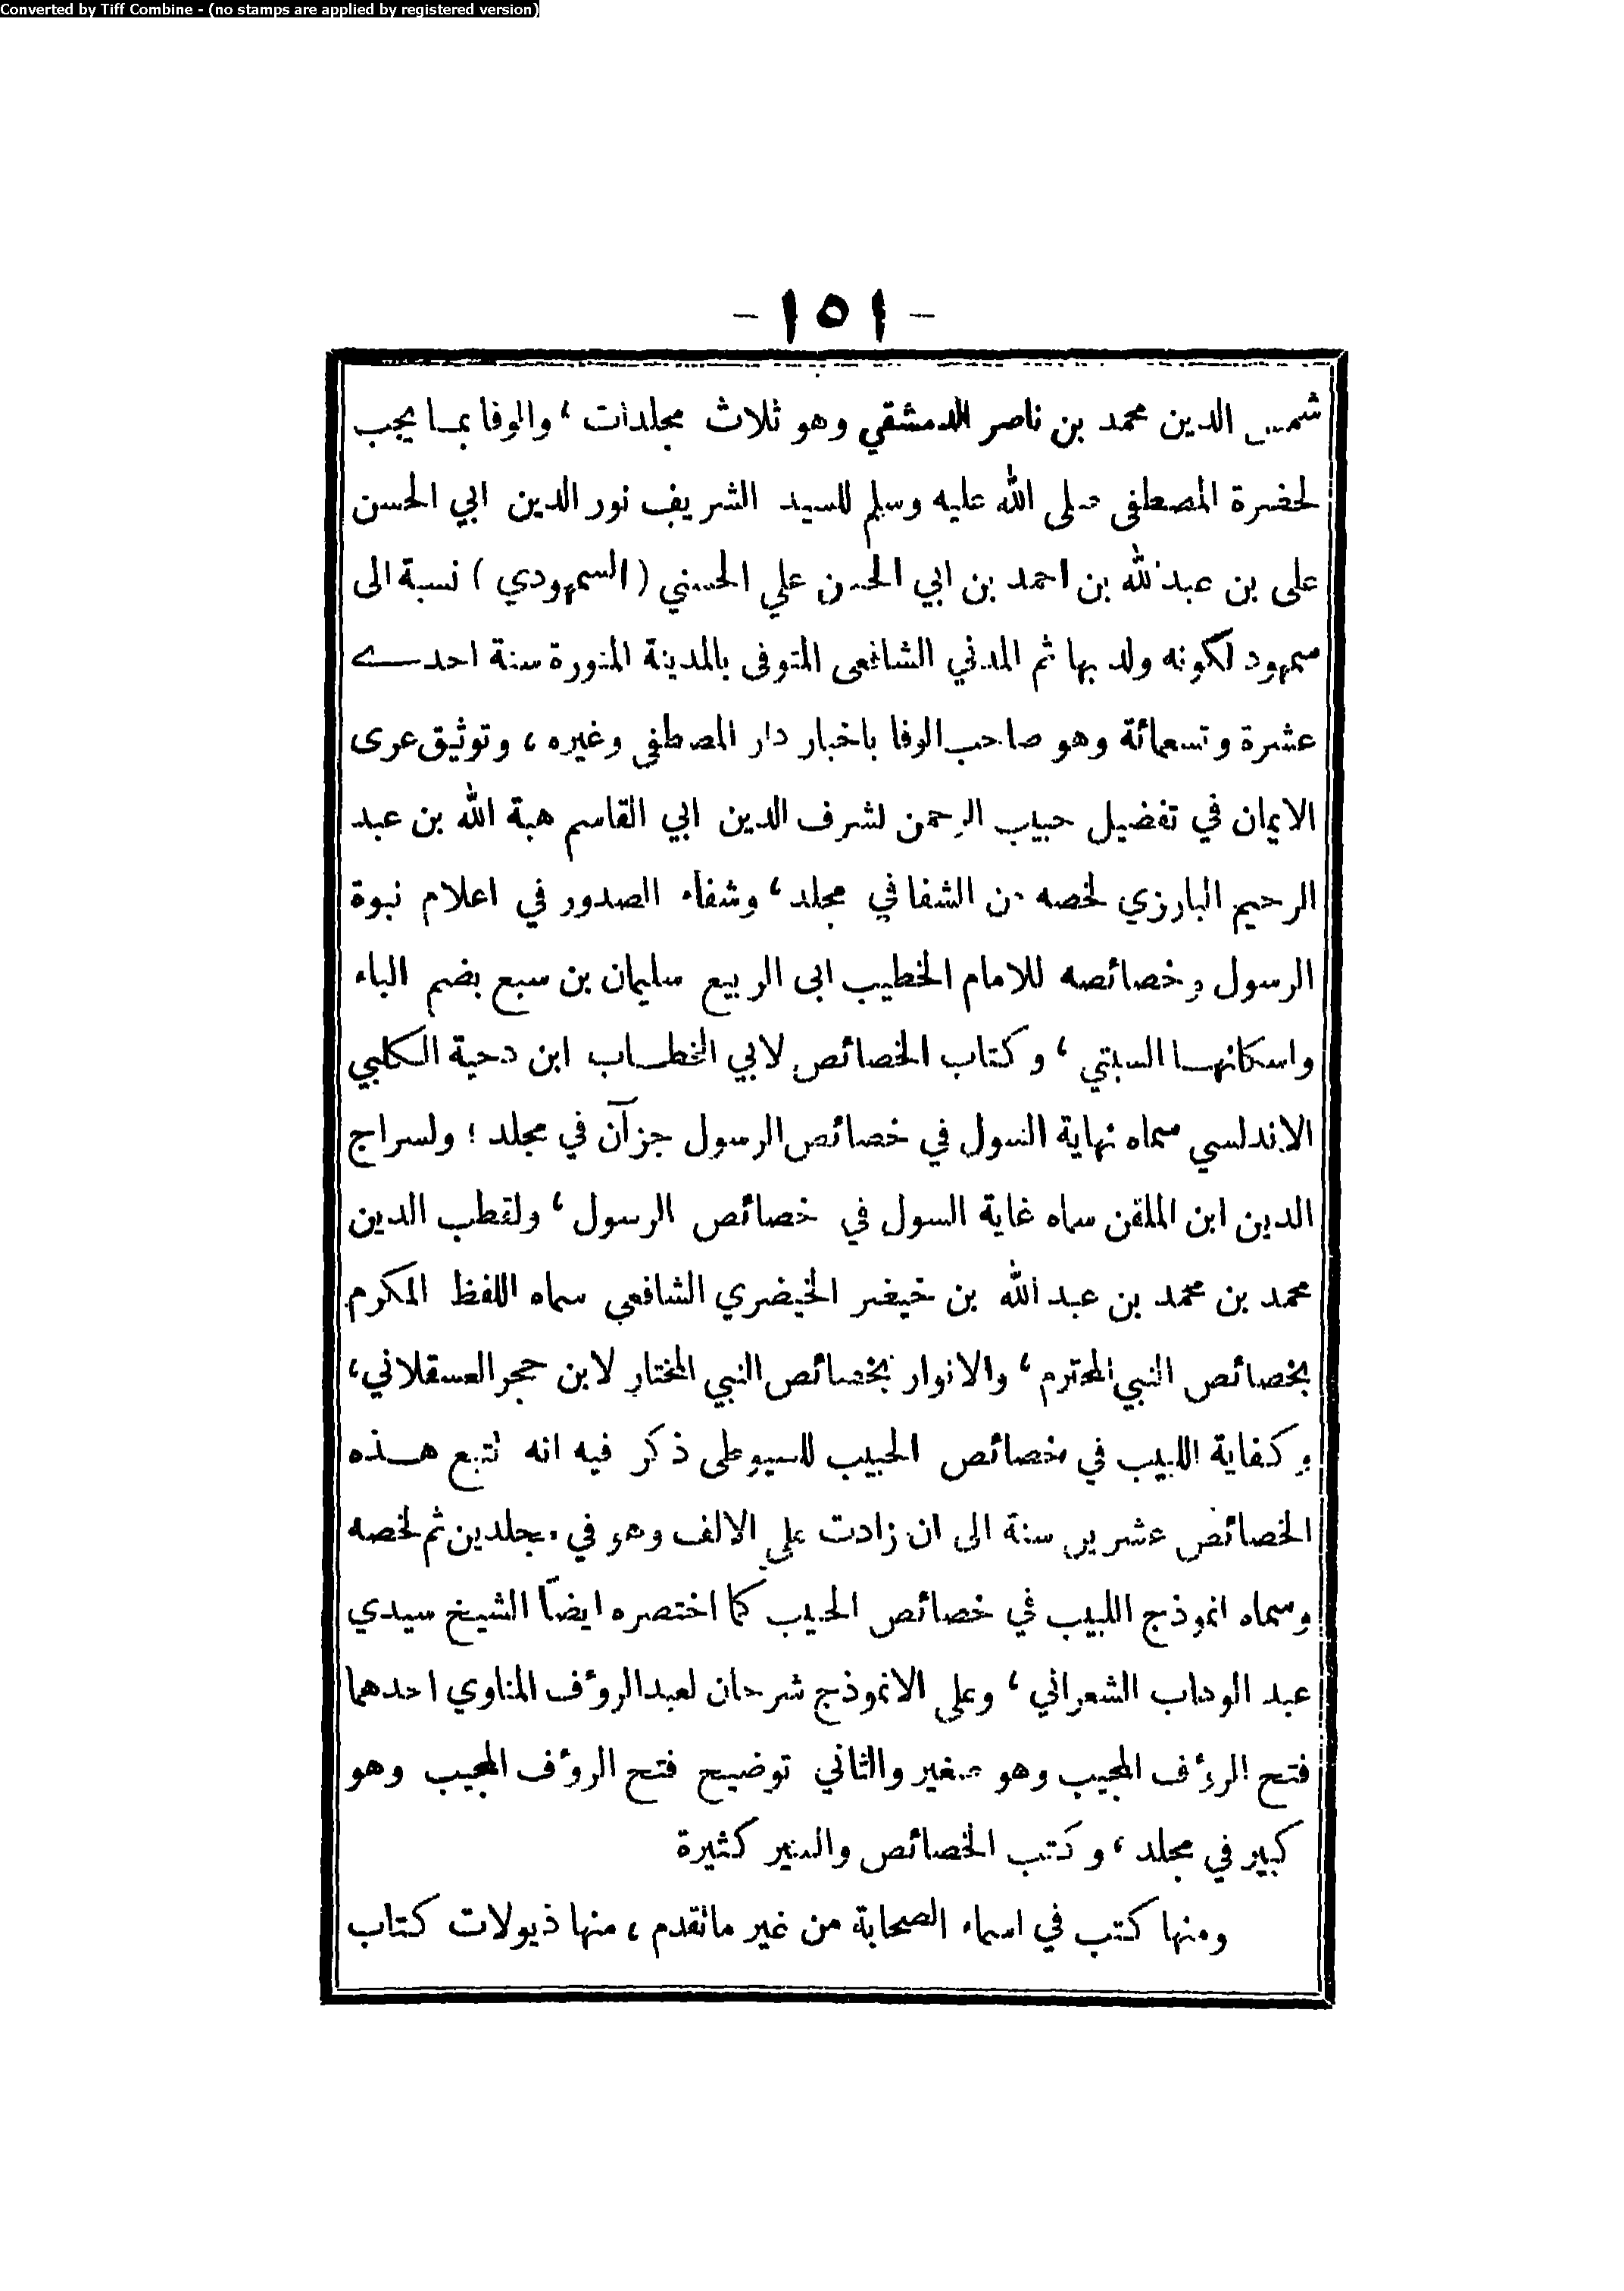 Converted by Tiff Combine - (no stamps are applied by registered version)
- ١٥١ -
شمس الدين محمد بن ناصر الدمشقي وهو ثلاث مجلدات ، والوفا بما يجب
لحضرة المصطفى صلى الله عليه وسلم للسيد الشريف نور الدين ابي الحسن
على بن عبد الله بن احمد بن ابي الحسن علي الحسني (السمهودي) نسبة الى
سمهود لكونه ولد بها ثم المدني الشافعى المتوفى بالمدينة المنورة سنة احدے
عشرة وتسعمائة وهو صاحب الوفا باخبار دار المصطفى وغيره ، وتوثيق عرى
الايمان في تفضيل حبيب الرحمن لشرف الدين ابي القاسم هبة الله بن عبد
الرحيم البارزي لخصه من الشفا في مجلد ، وشفاء الصدور في اعلام نبوة
الرسول وخصائصه للامام الخطيب ابى الربيع سليمان بن سبع بضم الباء
واسكانها السبتي ، وكتاب الخصائص لابي الخطاب ابن دحية الكلبي
الاندلسي سماه نهاية السول في خصائص الرسول جزآن في مجلد ؛ ولسراج
الدين ابن الملقن سماه غاية السول في خصائص الرسول ، ولقطب الدين
محمد بن محمد بن عبد الله بن خيضر الخيضري الشافعي سماه اللفظ المكرم
بخصائص النبي المحترم ، والانوار بخصائص النبي المختار لابن حجر العسقلاني ،
وكفاية اللبيب في خصائص الحبيب للسيوطى ذكر فيه انه تتبع هذه
الخصائص عشرين سنة الى ان زادت على الالف وهو في مجلدين ثم لخصه
وسماه انموذج اللبيب في خصائص الحبيب كما اختصره ايضاً الشيخ سيدي
عبد الوهاب الشعراني ، وعلى الانموذج شرحان لعبد الروءف المناوي احدهما
فتح الروءف المجيب وهو صغير والثاني توضيح فتح الروءف المجيب وهو
كبير في مجلد ، وكتب الخصائص والسير كثيرة
ومنها كتب في اسماء الصحابة من غير ماتقدم ، منها ذيولات كتاب